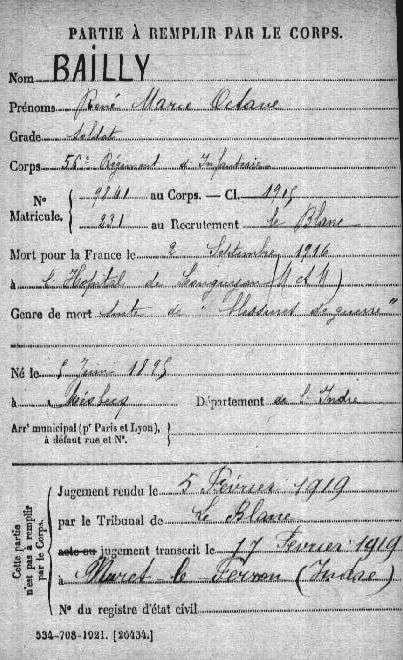 PARTIE À REMPLIR PAR LE CORPS.
Nom BAILLY
Prénoms René Marie Octave
Grade Soldat
Corps 56e Régiment d'Infanterie
N° Matricule. { 9841 au Corps. — Cl. 1915
231 au Recrutement Le Blanc
Mort pour la France le 2 Septembre 1916
à l'Hôpital de Longuyon (M et M)
Genre de mort Suite de "Blessures de guerre"
Né le 5 Juin 1895
à Département de l'Indre
Arr' municipal (p' Paris et Lyon),
à défaut rue et N°.
Cette partie n'est pas à remplir par le Corps.
Jugement rendu le 5 Février 1919
par le Tribunal de Le Blanc
acte ou jugement transcrit le 17 Février 1919
à le Ferron (Indre)
N° du registre d'état civil
534-708-1921. [26434.]